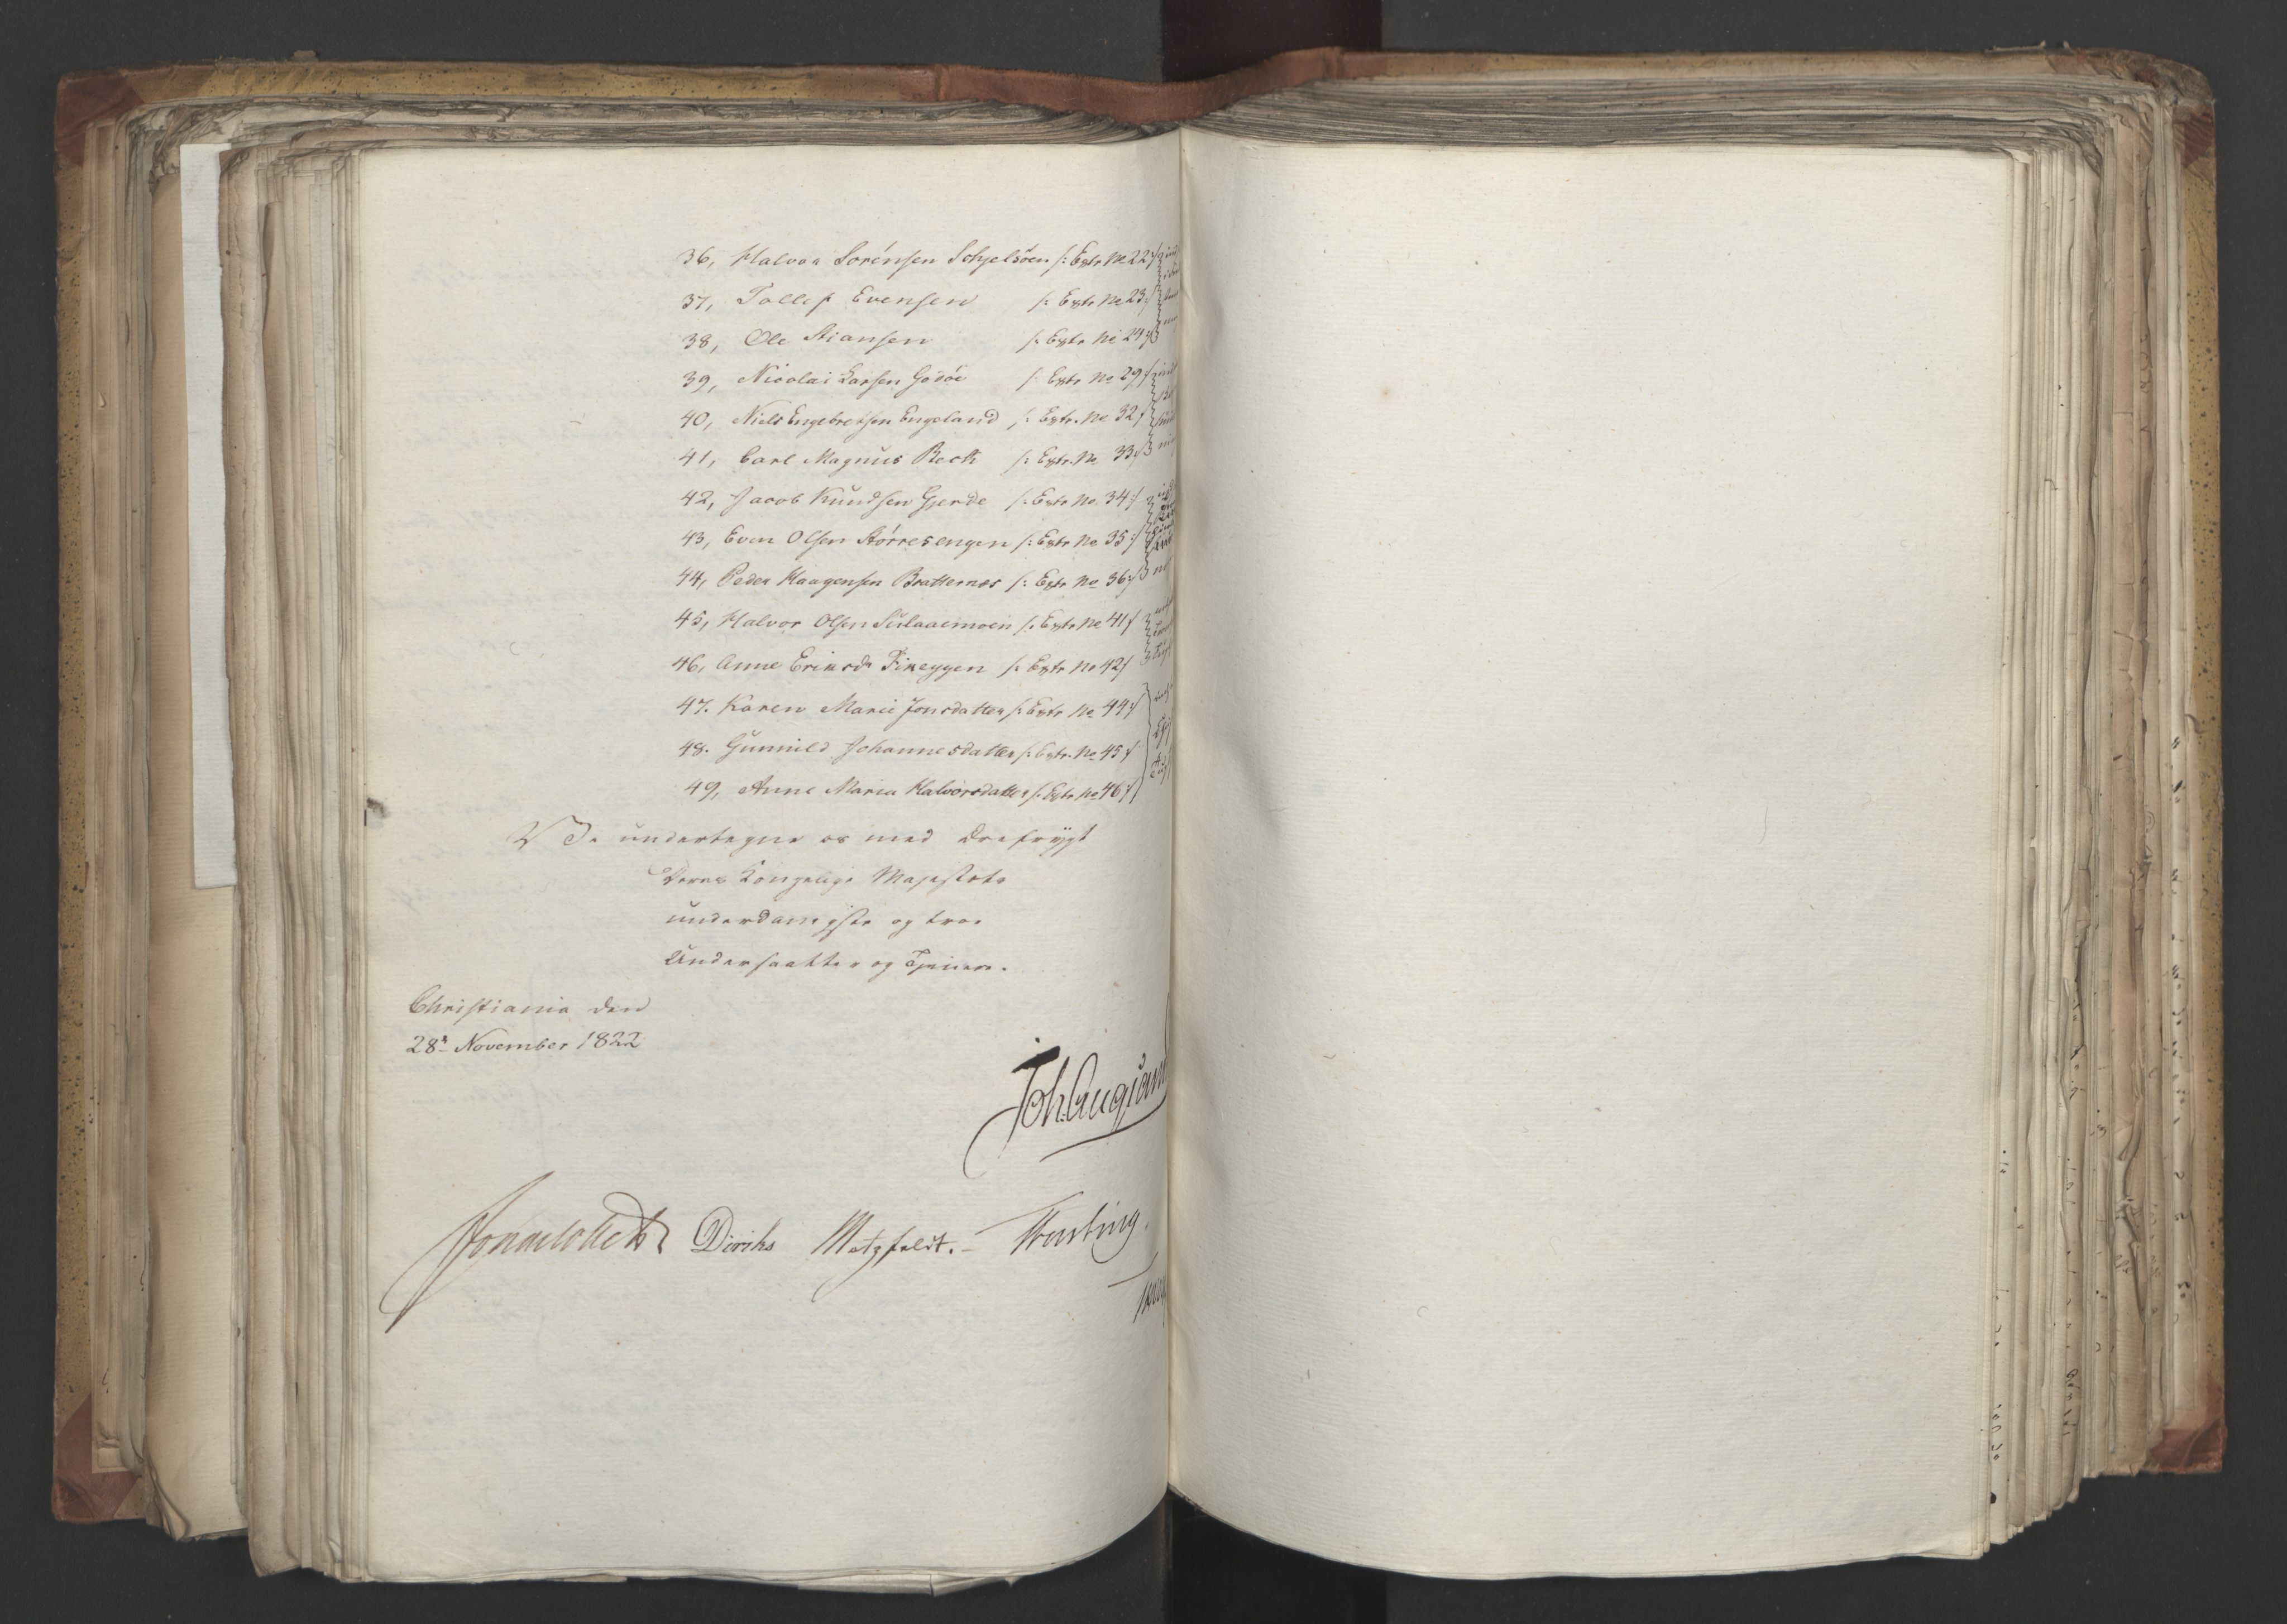 36, Halvor Sörensen Schjelsöen /: Extr. No 22 :/
37, Tollef Evensen /: Extr No 23 :/
38, Ole Stiansen /: Extr. No 24 :/
39, Nicolai Larsen Godöe /: Extr No 29 :/
40, Niels Engebretsen Engeland /: Extr. No 32 :/
41, Carl Magnus Beck /: Extr. No 33 :/
42, Jacob Knudsen Gjerde /: Extr No. 34 :/
43, Even Olsen Störresengen /: Extr No 35 :/
44, Peder Haagensen Bratternes /: Extr No 36 :/
45, Halvor Olsen Sulaaemoen /: Extr No 41 :/
46, Anne Eriksdr /: Extr No 42 :/
47. Karen Marie Jonsdatter /: Extr No 44 :/
48. Gunnild Johannesdatter /: Extr. No 45 :/
49, Anne Maria Halvorsdatter /: Extr No 46 :/
Vi undertegne os med Ærefrygt
Deres Kongelige Majestets
underdanigste og troe
Undersaatter og Tjenere.
Christiania den
28de November 1822
Diriks Motzfeldt.